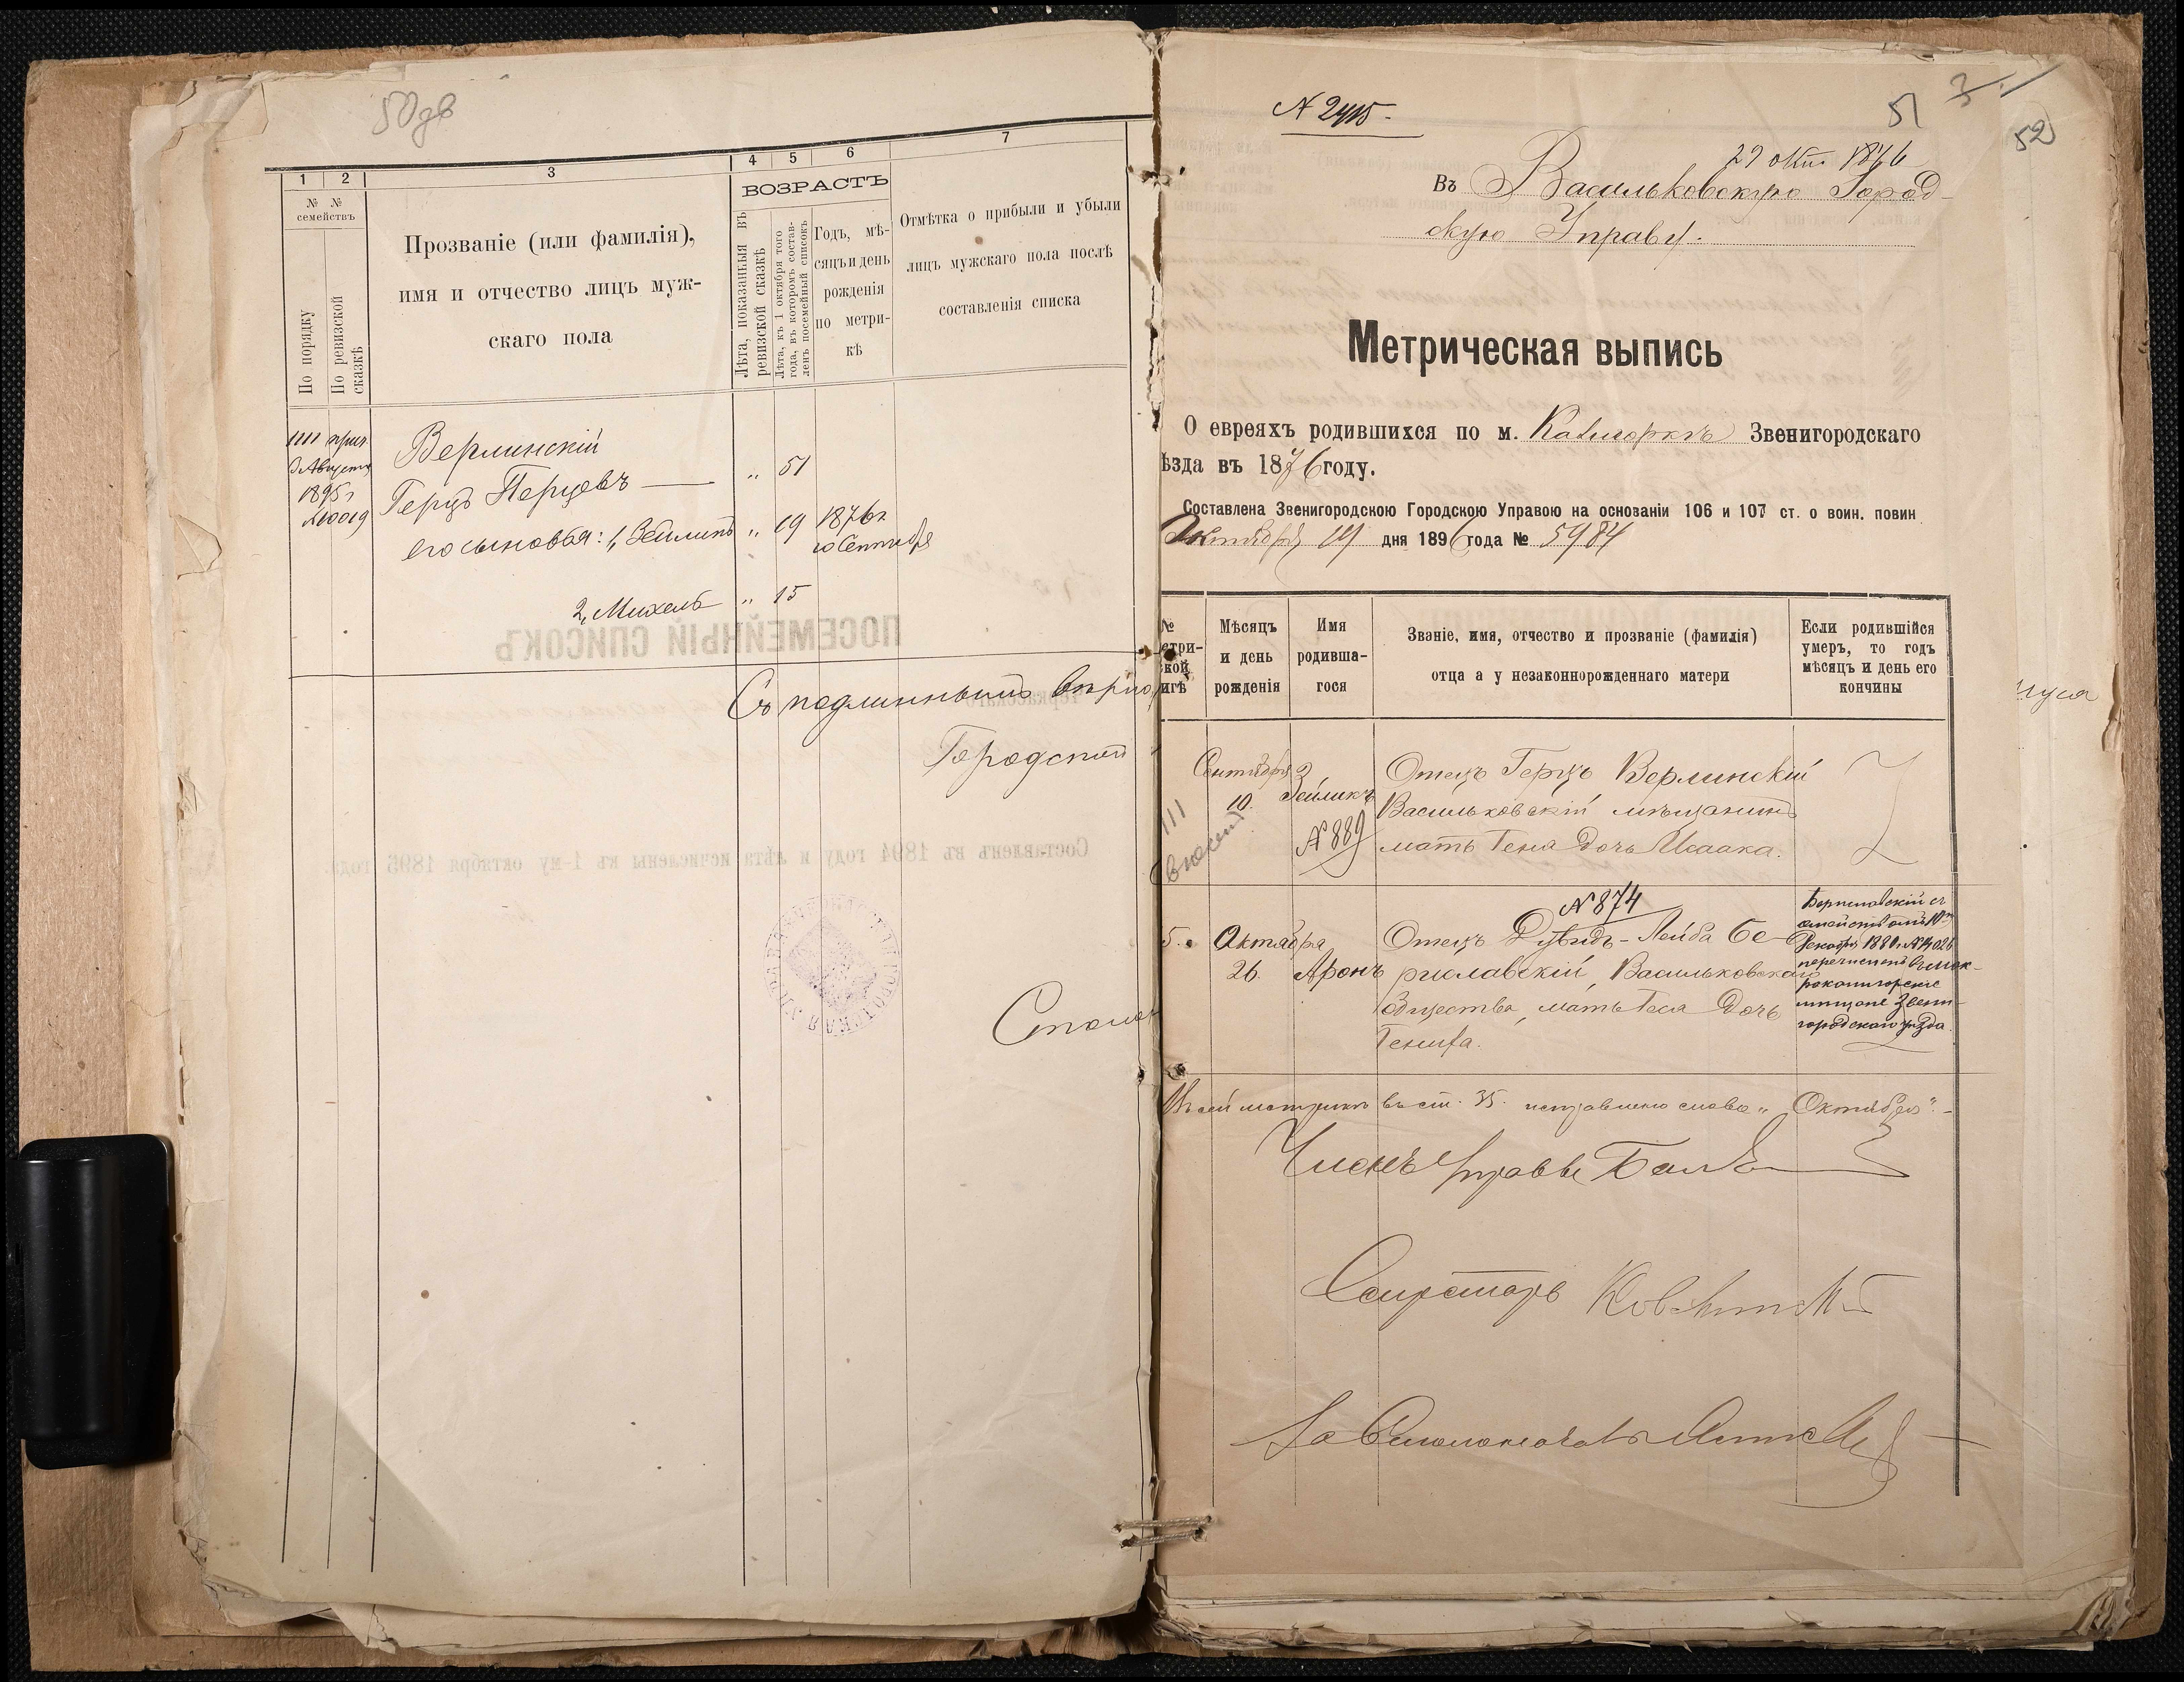 50 об
1 2 3 4 5 6 7
№ № семействъ
По порядку
По ревизской сказкѣ
Прозваніе (или фамилія),
имя и отчество лицъ муж-
скаго пола
ВОЗРАСТЪ
Лѣта, показанныя въ
ревизской сказкѣ
Лѣта, къ 1 октября того
года, въ которомъ состав-
ленъ посемейный списокъ
Годъ, мѣ-
сяцъ и день
рожденія
по метри-
кѣ
Отмѣтка о прибыли и убыли
лицъ мужскаго пола послѣ
составленія списка
1111 прич.
3 Августа
1895 г
№10019
Верлинскій
Герцъ Перцевъ — „ 51
его сыновья: 1, Зейликъ „ 19 1876 г.
10 Сентября
2, Михель „ 15
ПОСЕМЕЙНЫЙ СПИСОКЪ
Съ подлиннымъ вѣрно
Городской
Составленъ въ 1894 году и лѣта исчислены къ 1-му октября 1895 года.
51
52
29 окт. 1896
Въ Васильковскую Город-
скую Управу.
Метрическая выпись
О евреяхъ родившихся по м. Звенигородскаго
ѣзда въ 1876 году.
Составлена Звенигородскою Городскою Управою на основаніи 106 и 107 ст. о воин. повин
Октября 19 дня 1896 года № 5984
№
етри-
кой
игѣ
Мѣсяцъ
и день
рожденія
Имя
родивша-
гося
Званіе, имя, отчество и прозваніе (фамилія)
отца а у незаконнорожденнаго матери
Если родившійся
умеръ, то годъ
мѣсяцъ и день его
кончины
Сентября
10.
Зейликъ
№ 889
Отецъ Герцъ Верлинскій
Васильковскій мѣщанинъ
мать Геня дочь Исаака.
111
внесенъ
№ 874
5. Октября
26. Аронъ
Отецъ Дувидъ-Лейба Бе-
риславскій, Васильковскаго
Общества, мать Геся дочь
Бериславскій съ
семействомъ 10
Декабря
перечисленъ въ
мѣщане Звени-
городскаго уѣзда.
Въ сей метрикѣ въ ст. исправлено слово „Октября". -
Членъ Управы
Секретарь